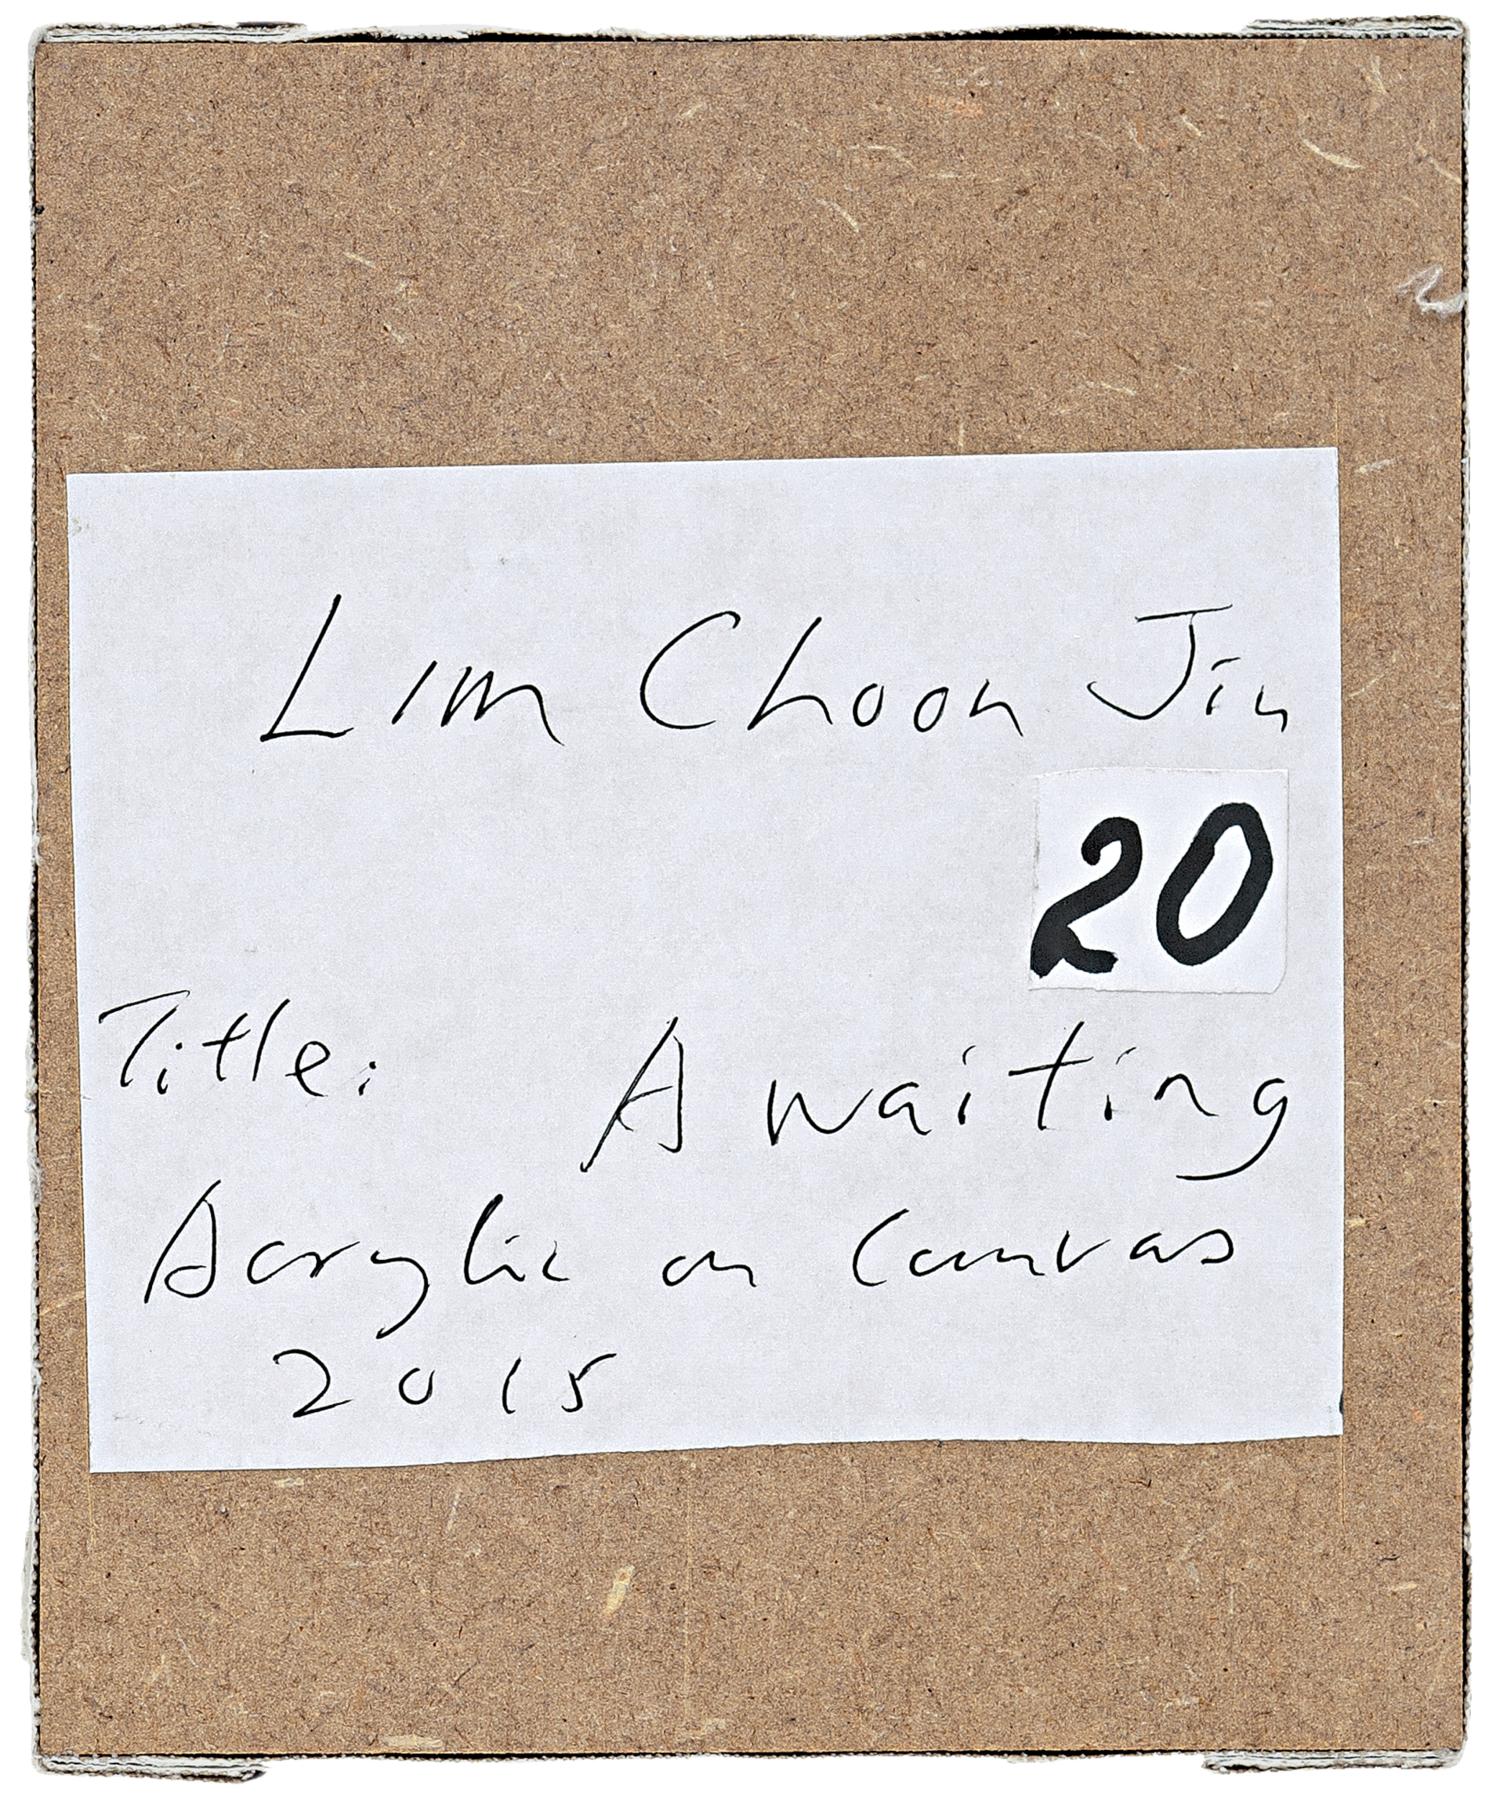 Lim Choon Jin
20
Title: Awaiting
Acrylic on Canvas
2015